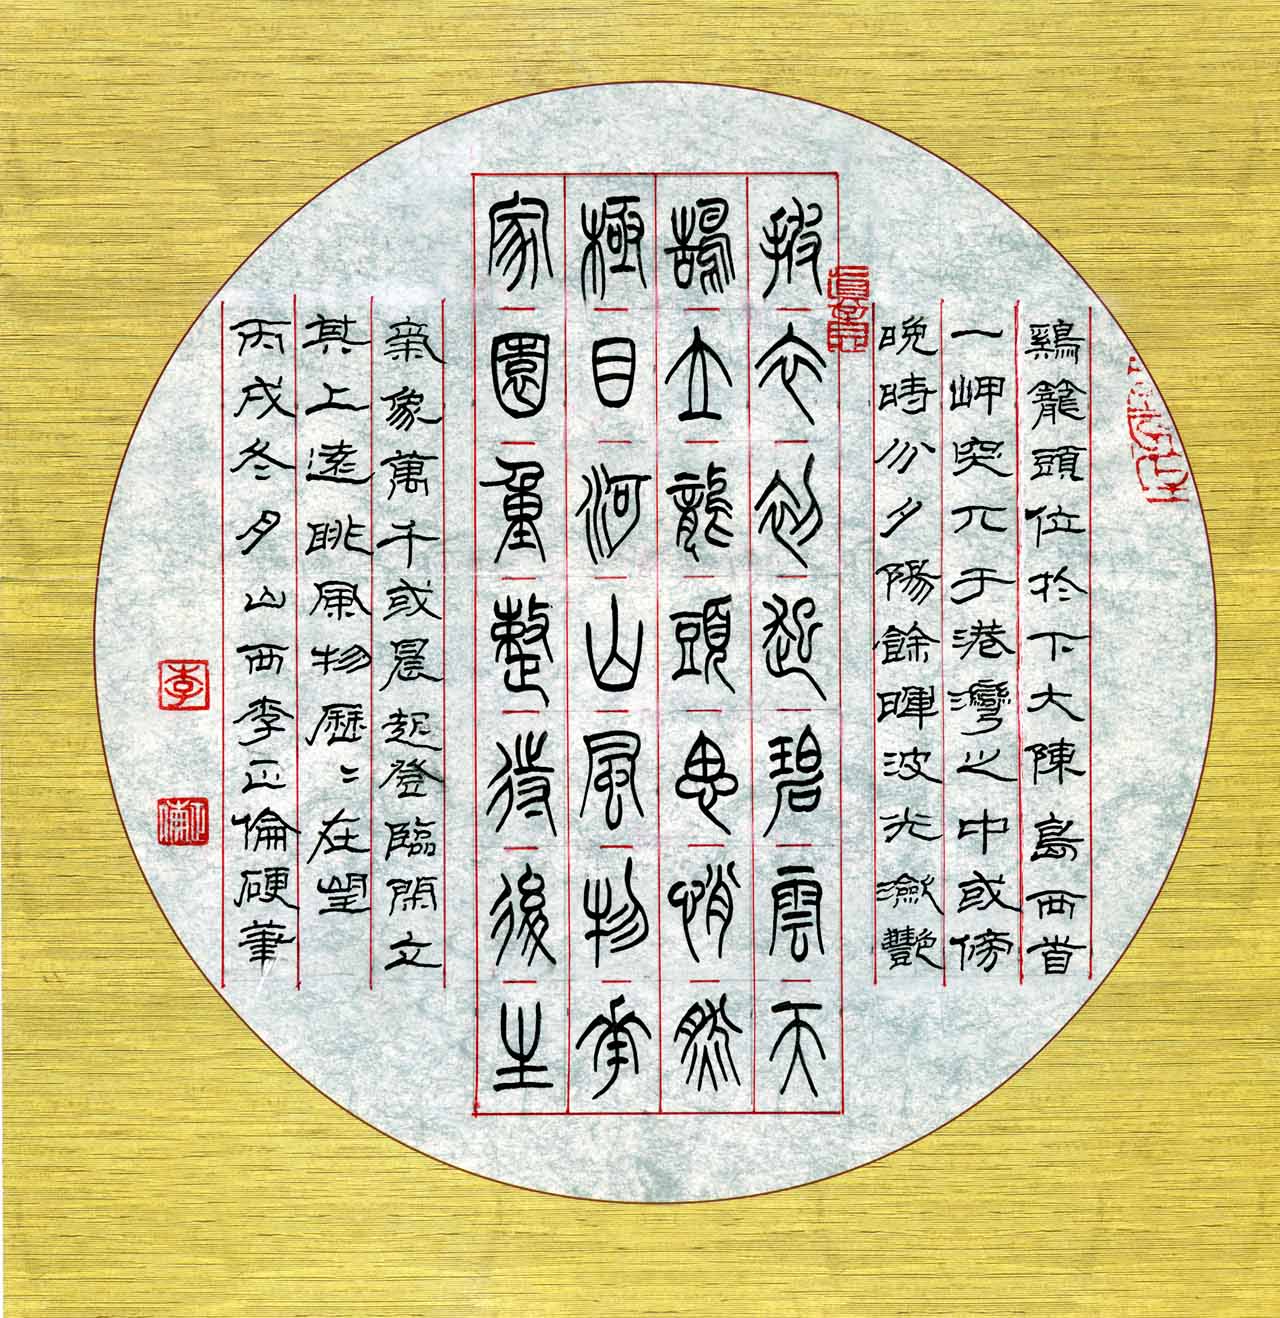 鷄籠頭位於下大陳島西首
一岬突兀于港灣之中或傍
晚時分夕陽餘暉波光瀲艷
披衣初起碧雲天
鵠立龍頭思悄然
極目河山風物秀
家園重整待後生
氣象萬千或晨起登臨閑立
其上遠眺風物歷〻在望
丙戌冬月山西李正倫硬筆
李
正倫